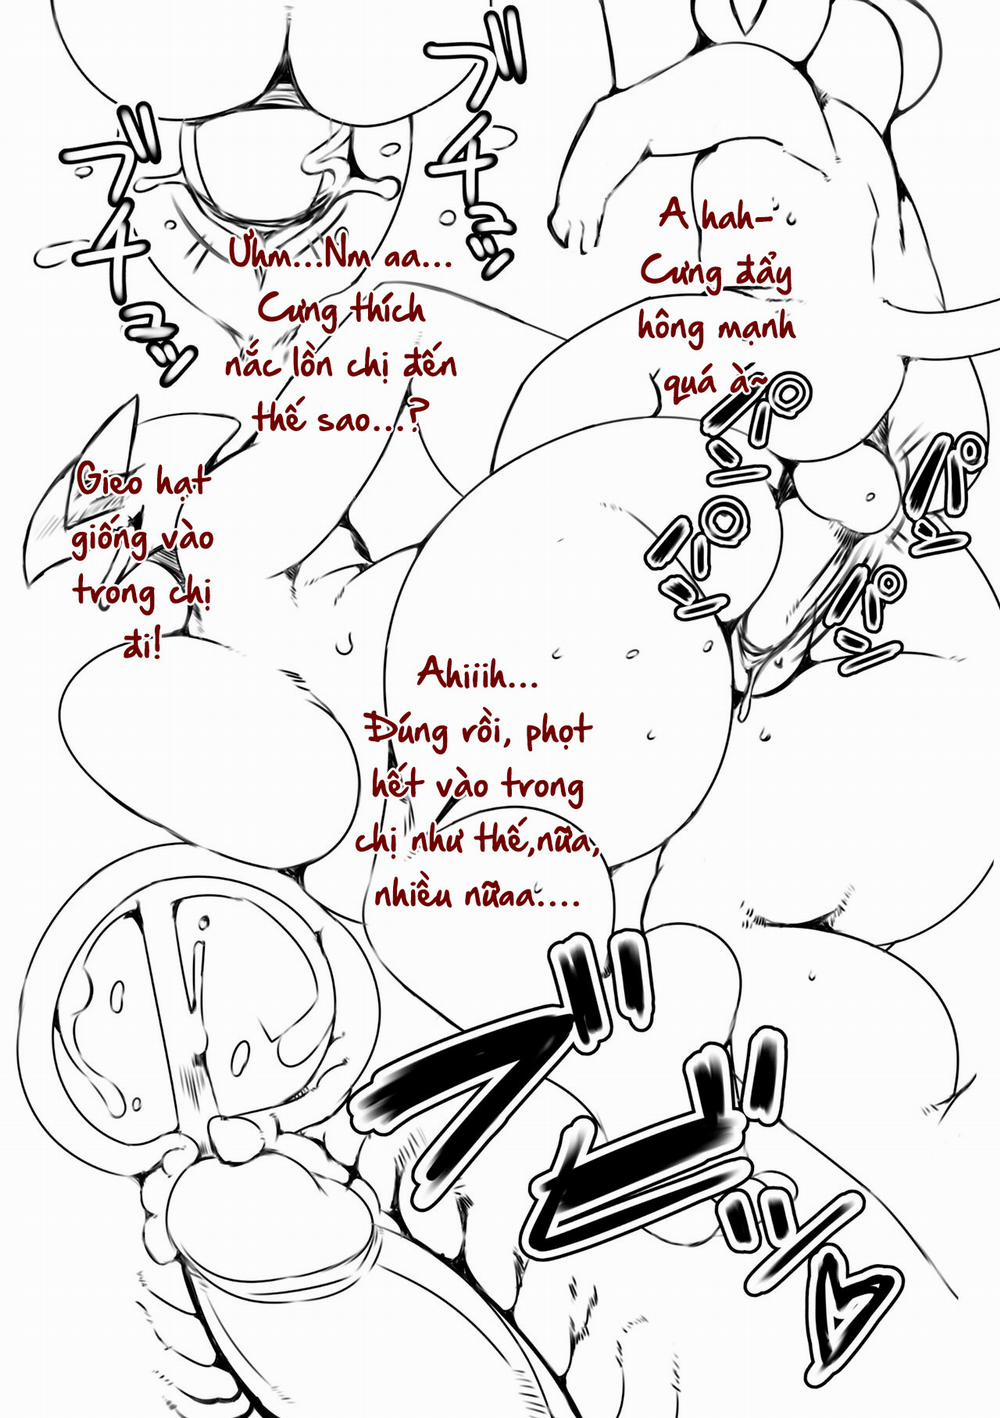 ブイュッ
ブイュッ
A hah-
Cưng đẩy
hông mạnh
quá à~
Ưhm...Nm aa...
Cưng thích
nắc lồn chị đến
thế sao...?
パン
パン
パン
パン
Gieo hạt
giống vào
trong chị
đi!
Ahiiih...
Đúng rồi, phọt
hết vào trong
chị như thế,nữa,
nhiều nữaa....